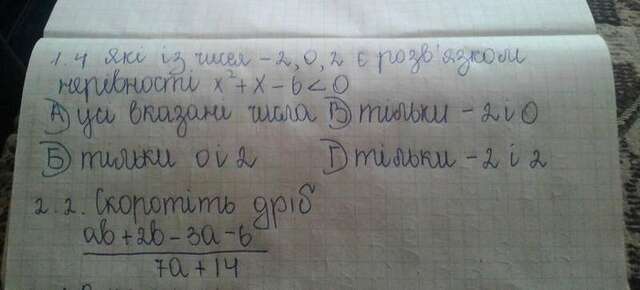 1.4 які із чисел -2, 0, 2 є розв'язком
нерівності x²+x-6<0
А) усі вказані числа В) тільки -2 і 0
Б) тільки 0 і 2 Г) тільки -2 і 2
2.2. Скоротіть дріб
ab+2b-3a-6
7a+14